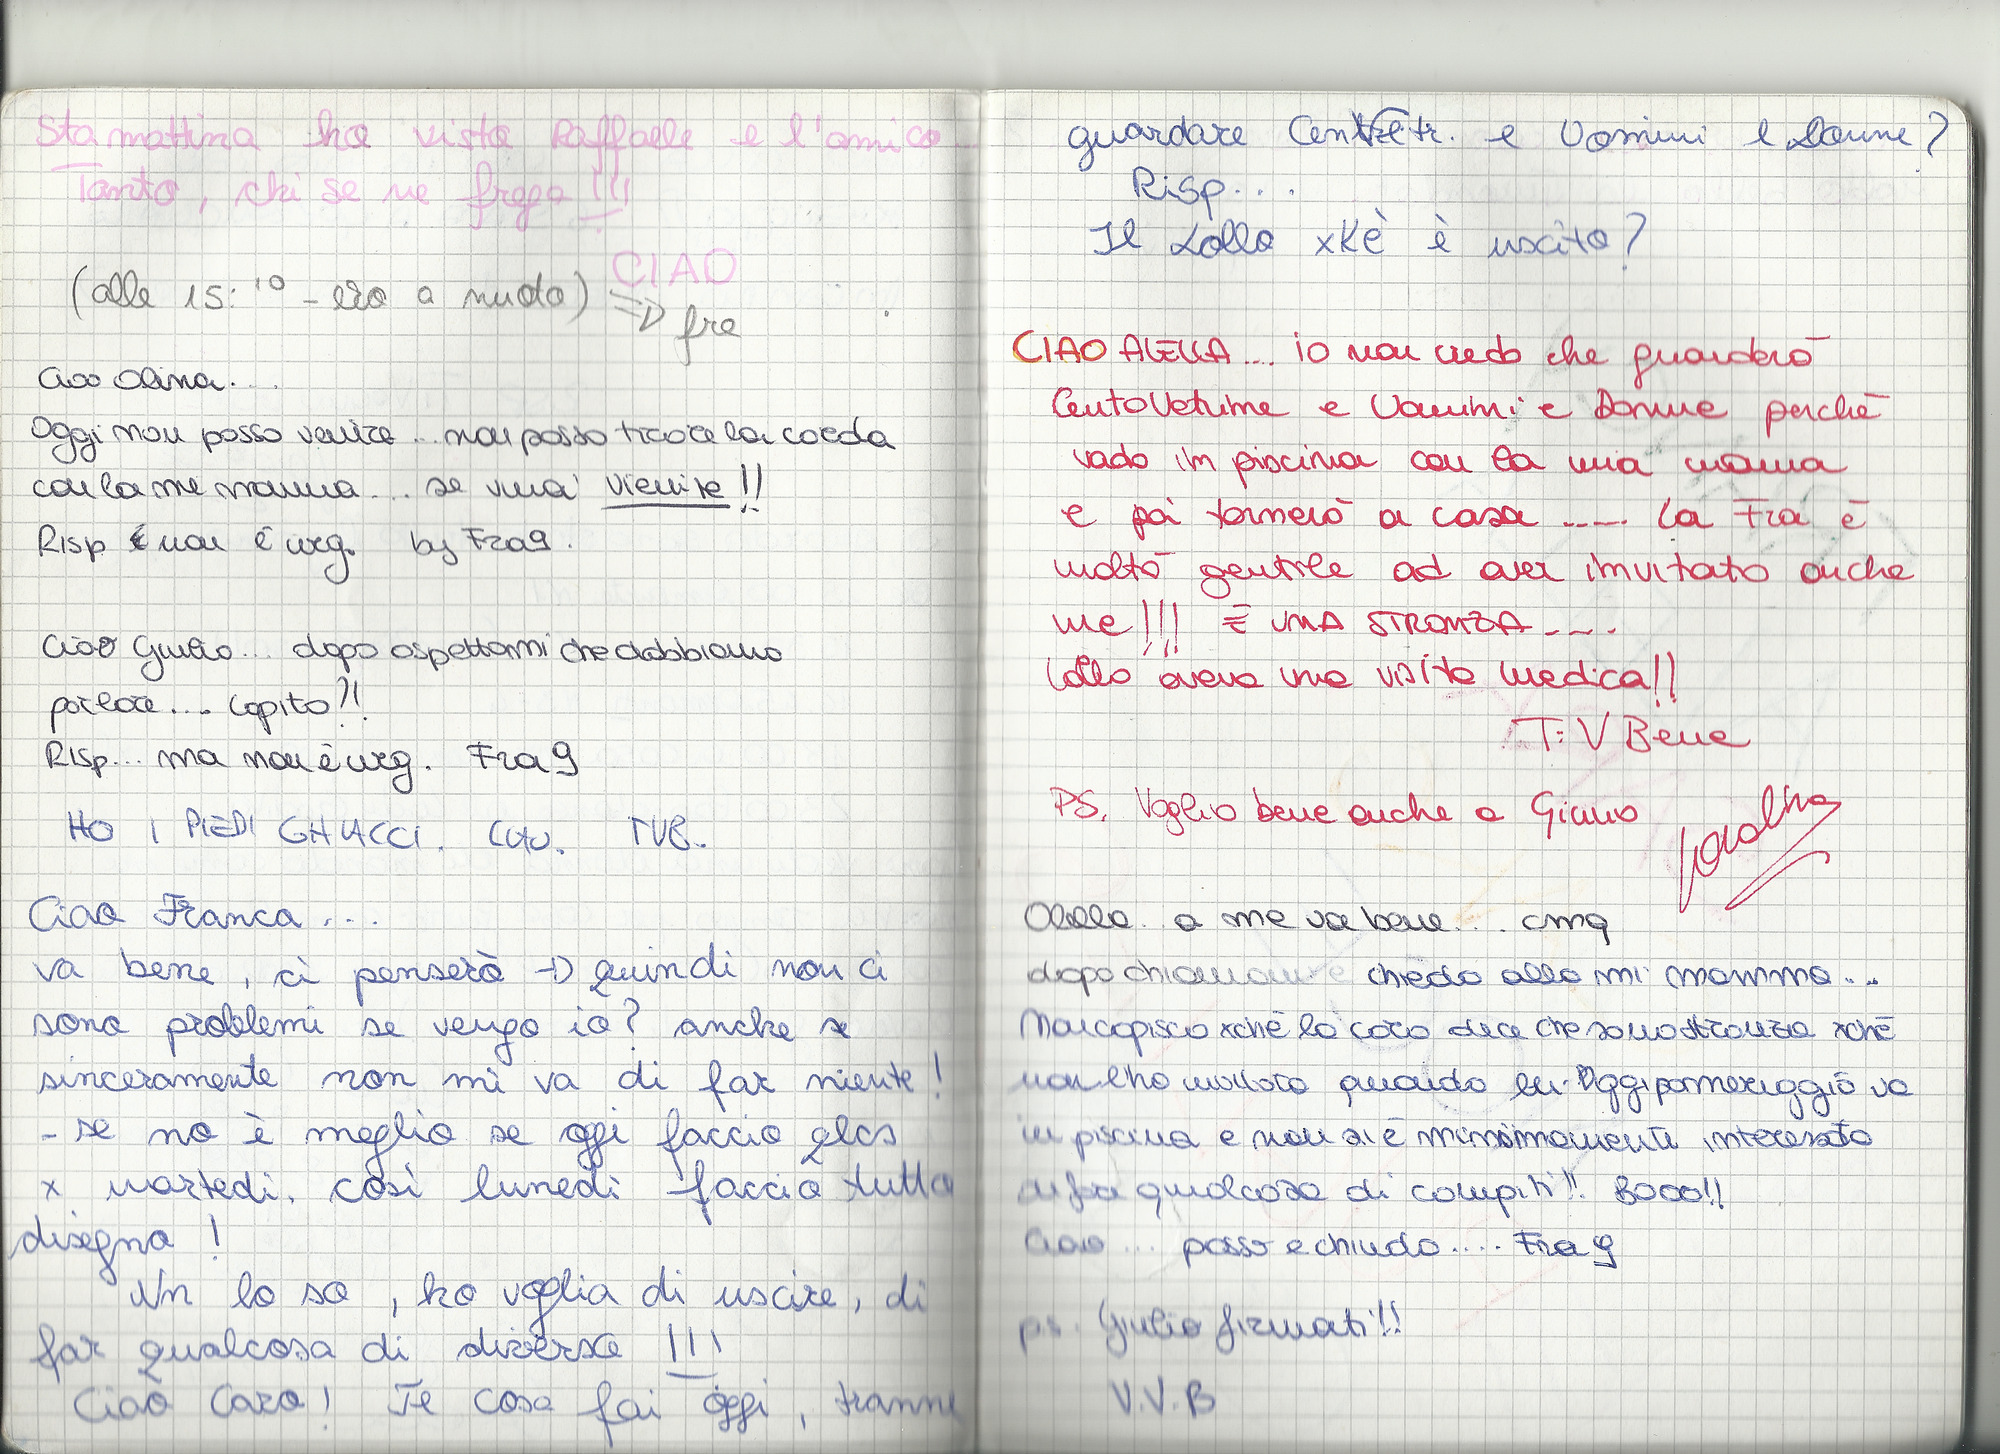 Stamattina ho visto Raffaele e l'amico...
Tanto, chi se ne frega!!!
CIAO
(alle 15:10 - ero a nudo) => fra
Ciao Olima....
Oggi non posso venire... non posso tirare la corda
con la me mamma.... se vuoi venite!!
Risp è non è urg. by Fra9.
Ciao Giulio... dopo aspettami che dobbiamo
parlare.... Capito?!
Risp... ma non è urg. Fra9
HO I PIEDI GHIACCI. CIAO. TVB.
Ciao Franca...
va bene, ci penserò -D quindi non ci
sono problemi se vengo io? anche se
sinceramente non mi va di far niente!
- se no è meglio se oggi faccio qlcs
x martedì, così lunedì faccio tutto
disegno!
Nn lo so, ho voglia di uscire, di
far qualcosa di diverso !!!
Ciao Caro! Te cosa fai oggi, tranne
guardare Centovetr. e Uomini e Donne?
Risp....
Il Lollo xKè è uscito?
CIAO ALELLA.... io non credo che guarderò
CentoVetrine e Uomini e Donne perchè
vado in piscina con la mia mamma
e poi tornerò a casa ..... la Fra è
molto gentile ad aver invitato anche
me!!! È UNA STRONZA....
Lollo aveva una visita medica!!
T.V Bene
PS. Voglio bene anche a Giulio
Carolina
Olella.. a me va bene.... cmq
dopo chiamami e chiedo alla mi mamma...
Non capisco xchè la caro dice che sono stronza xchè
non l'ho invitata quando lei oggi pomeriggio va
in piscina e non si è minimamente interessata
di far qualcosa di compiti!! BOOO!!
Ciao... passo e chiudo.... Fra 9
p.s. Giulio firmati!!
V.V.B